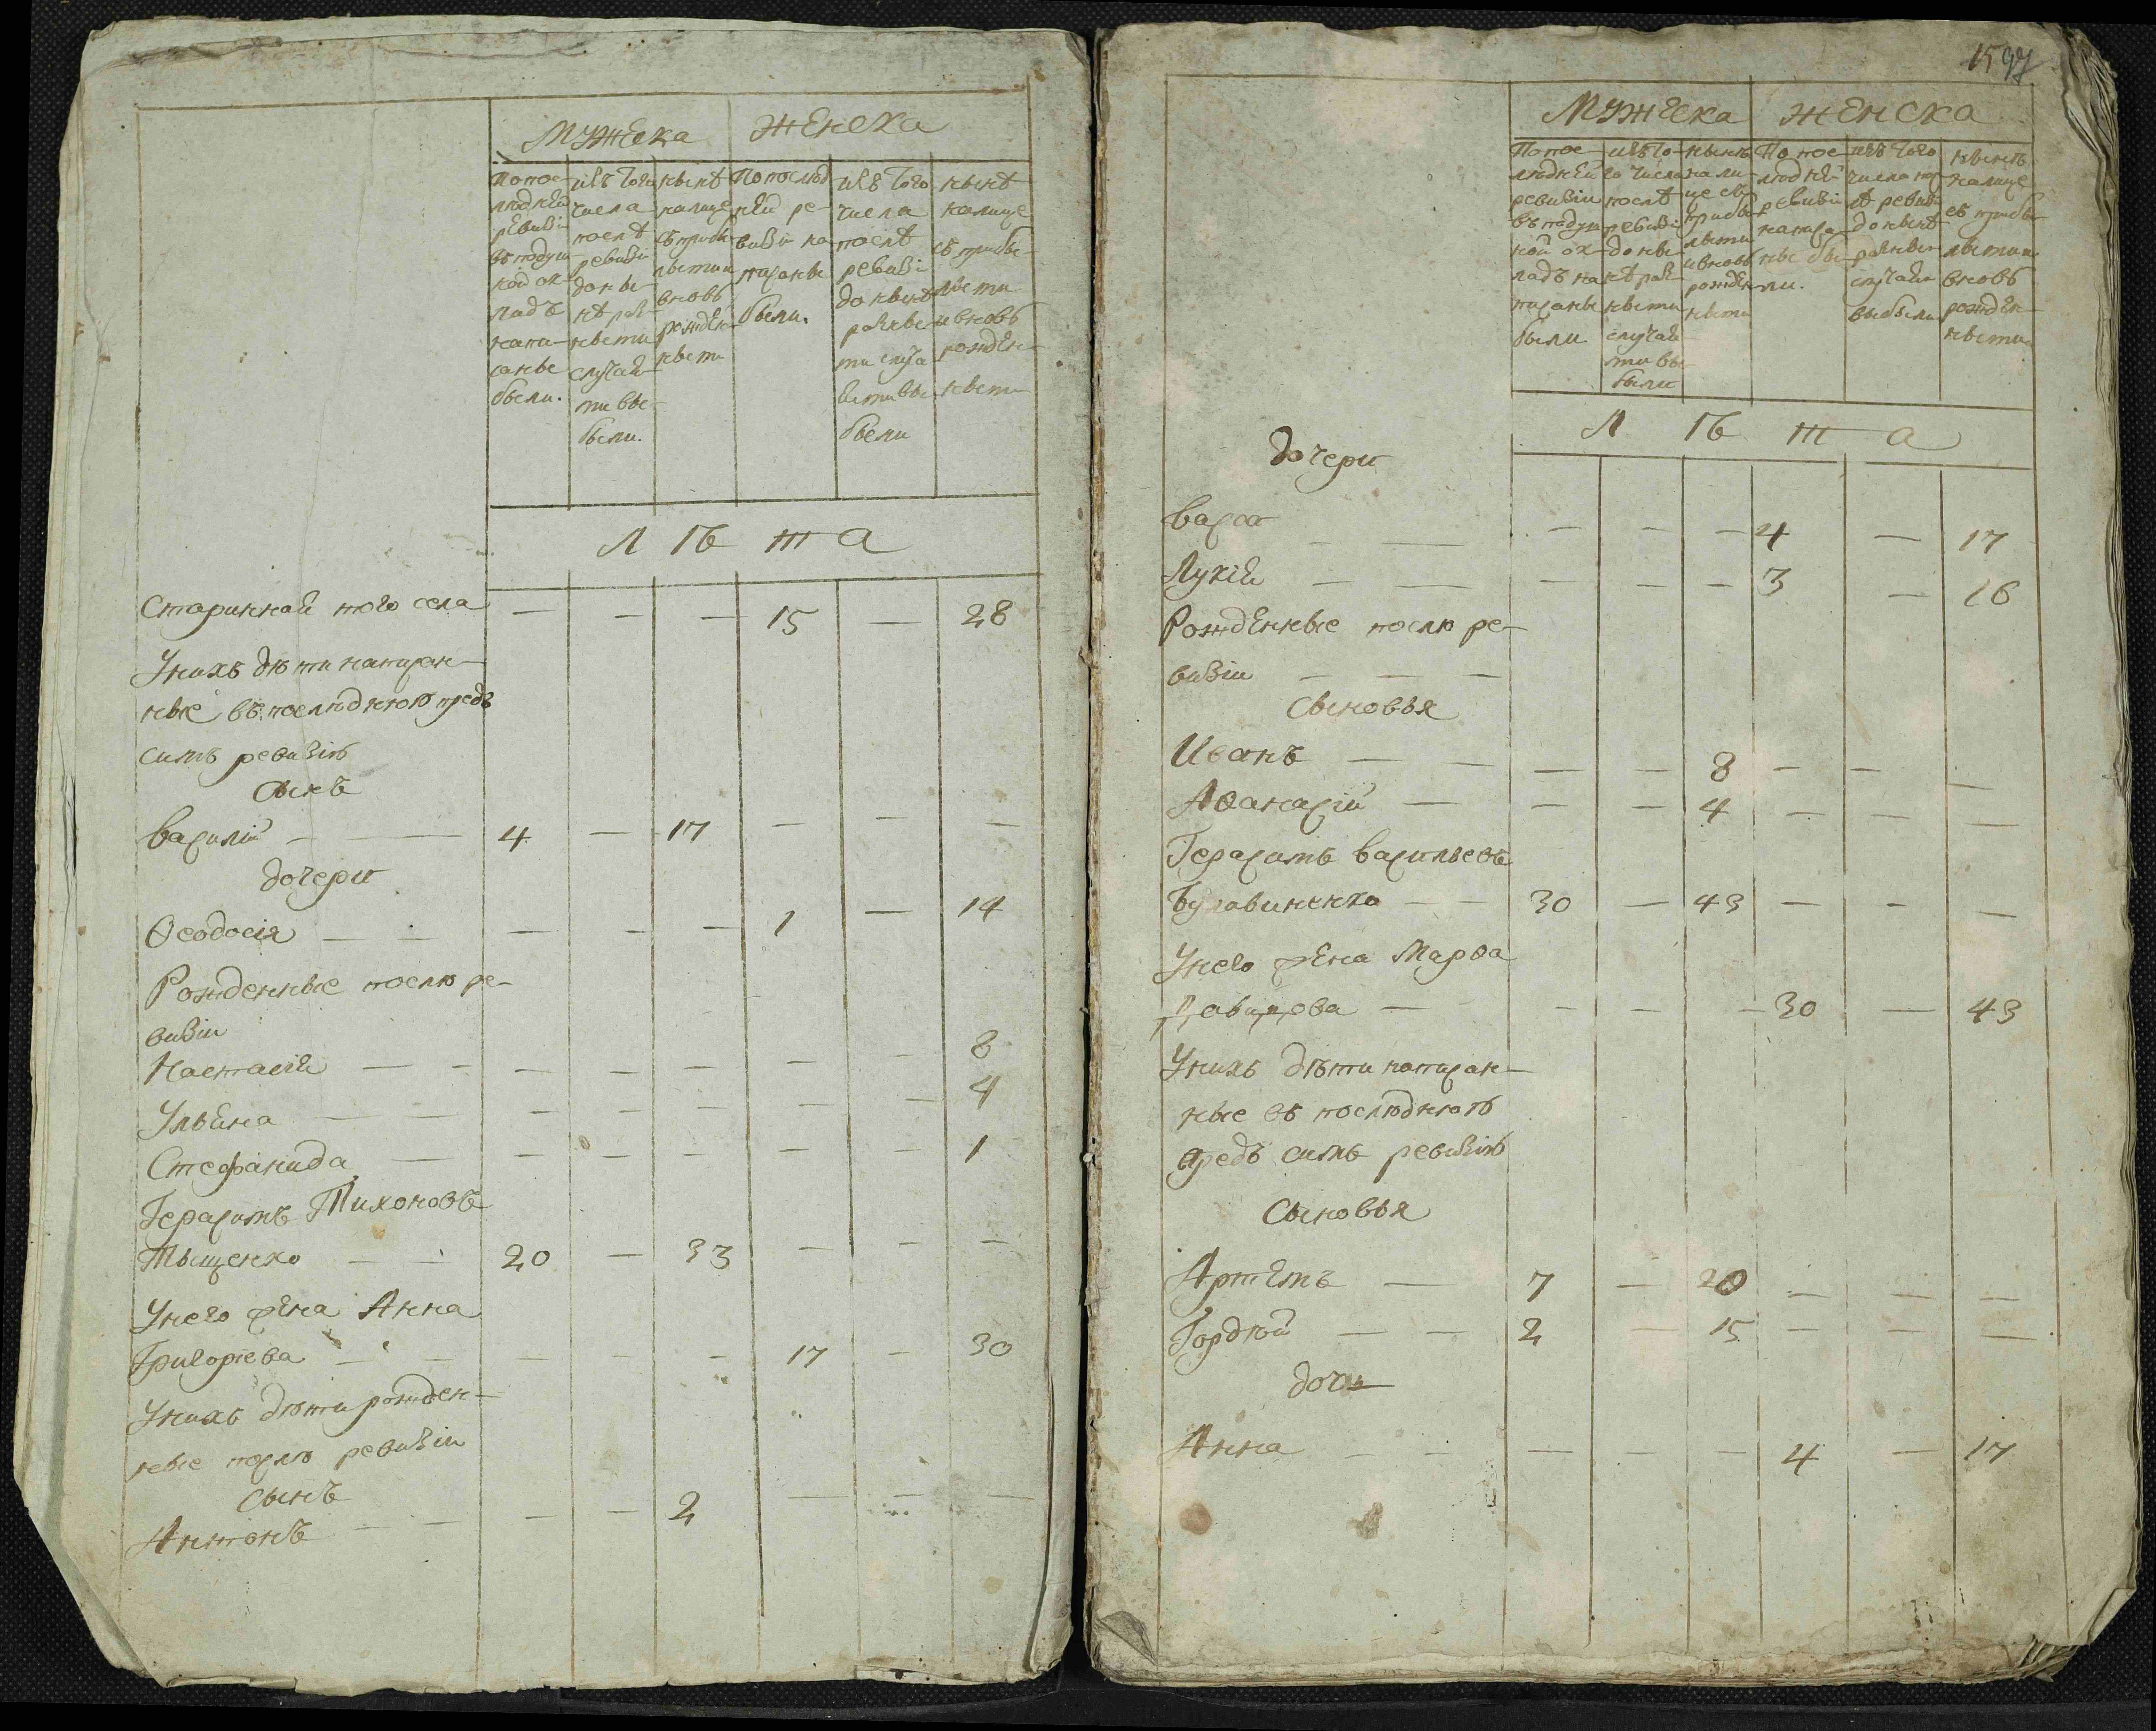 Мужеска женска
По пос-
ледней
ревизіи
въ подуш
ной ок-
ладъ
напи-
саны
были.
изъ того
числа
послѣ
ревизіи
до ны-
нѣ раз-
ными
случая-
ми вы-
были.
нынѣ
налице
съ прибы-
лыми
вновь
рожден-
ными
По послѣд
ней ре-
визіи на
писаны
были.
изъ того
числа
послѣ
ревизіи
до нынѣ
разны-
ми случа
ями вы-
были
нынѣ
налице
съ прибы-
лыми
и вновь
рожден-
ными
Л ѣ т а
Стариннай того села — — — 15 — 28
Унихъ дѣти написан-
ные въ последнюю предъ
симъ ревизію
сынъ
василій — — 4 — 17 — — —
дочери
Ѳеодосія — — — — — 1 — 14
Рожденные послѣ ре-
визіи
Настасія — — — — — — — 8
Ульяна — — — — — — — 4
Стефанида — — — — — — 1
Герасимъ Тихоновъ
Тыщенко — — 20 — 33 — — —
Унего жена Анна
Григорьева — — — — — 17 — 30
Унихъ дѣти рожден-
ные послѣ ревизіи
сынъ
Антонъ — — — — 2 — — —
1597
Мужеска женска
По пос-
ледней
ревизіи
въ подуш
ной ок-
ладъ на
писаны
были
изъ то-
го числа
послѣ
ревизіи
до ны-
нѣ раз-
ными
случая-
ми вы-
были
нынѣ
нали-
це съ
прибы-
лыми
и вновь
рожден-
ными
По пос-
ледней
ревизіи
написа-
ны бы-
ли.
изъ того
числа пос
лѣ ревизі
до нынѣ
разными
случаями
выбыли
нынѣ
налице
съ прибы-
лыми и
вновь
рожден-
ными
Л ѣ т а
дочери
васса — — — — — 4 — 17
Лукія — — — — — 3 — 16
Рожденные послѣ ре-
визіи — — —
Сыновья
Иванъ — — — — 8 — — —
Аѳанасій — — — 4 — — —
Герасимъ васильевъ
Булавиненко — — 30 — 43 — — —
Унего жена Марѳа
Давидова — — — — 30 — 43
Унихъ дѣти написан-
ные въ последнюю
предъ симъ ревизію
Сыновья
Артемъ — 7 — 20 — — —
Гордѣй — — 2 — 15 — — —
дочь
Анна — — — — — 4 — 17